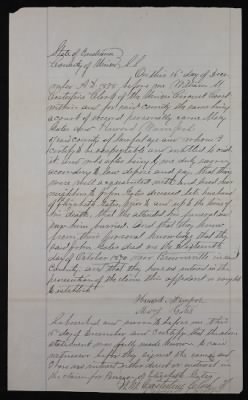 State of Indiana
County of Union } SS.
On this 15 day of Dece
mber A.D. 1878 before me William M
Clerk of the Union Circuit Court
within and for said county the same being
a court of record personally came Mary
Gates and Howard
of said county of lawful age and whom I
certify to be respectable and entitled to cred
it and who after being by me duly sworn
according to law depose and say that they
were well acquainted with and lived near
neighbors to John Gates deceased late husband
of Elizabeth Gates prior to and up to the time of
his death, that she attended his funeral and
saw him buried. And that they know
from their personal knowledge that the
said John Gates died on the sixteenth
day of October 1870 near Brownsville in said
County, and that they have no interest in the
prosecution of the claim their affidavit is sought
to establish
Howard
Mary Gates
Subscribed and sworn to before me this
15 day of December and I certify that the above
statement was fully made known to said
witnesses before they signed the same and
I have no interest either direct or indirect in
the claim for Pension of Elizabeth Gates
Clerk